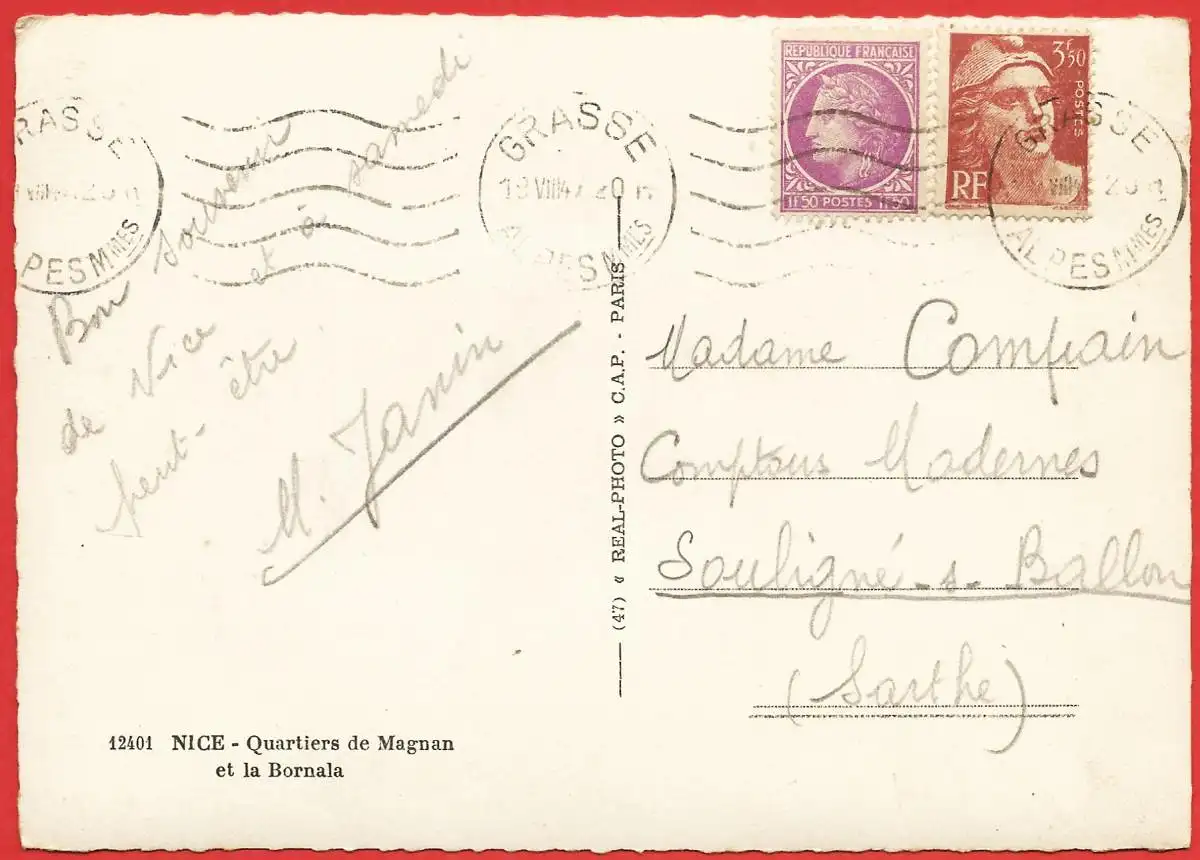 RÉPUBLIQUE FRANÇAISE
1F50 POSTES 1F50
3F50
POSTES
RF
RASSE
VIII 20
PES MMES
GRASSE
19 VIII47 20 H
ALPES MMES
GRASSE
VIII4 20 H
ALPES MMES
Bon souvenir
de Nice et à samedi
peut-être
M. Janin
(47) « REAL-PHOTO » C.A.P. - PARIS
Madame Compain
Comptoirs Modernes
Souligné-s-Ballon
(Sarthe)
12401 NICE - Quartiers de Magnan
et la Bornala